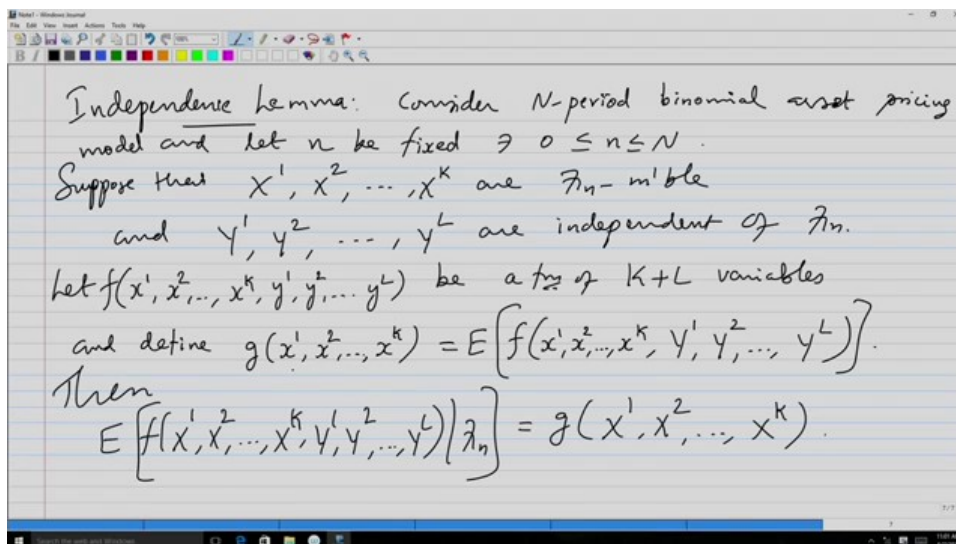 Note1 - Windows Journal
File Edit View Insert Actions Tools Help
Independence Lemma: Consider N-period binomial asset pricing
model and let n be fixed ∋ 0 ≤ n ≤ N.
Suppose that X¹, X², ..., Xᴷ are ℱₙ-m'ble
and Y¹, Y², ..., Yᴸ are independent of ℱₙ.
Let f(x¹, x², .., xᴷ, y¹, y², ... yᴸ) be a fn of K+L variables
and define g(x¹, x², .., xᴷ) = E[f(x¹, x², .., xᴷ, Y¹, Y², ..., Yᴸ)].
Then
E[f(X¹, X², ..., Xᴷ, Y¹, Y², ..., Yᴸ)|ℱₙ] = g(X¹, X², ..., Xᴷ).
7/7
Search the web and Windows